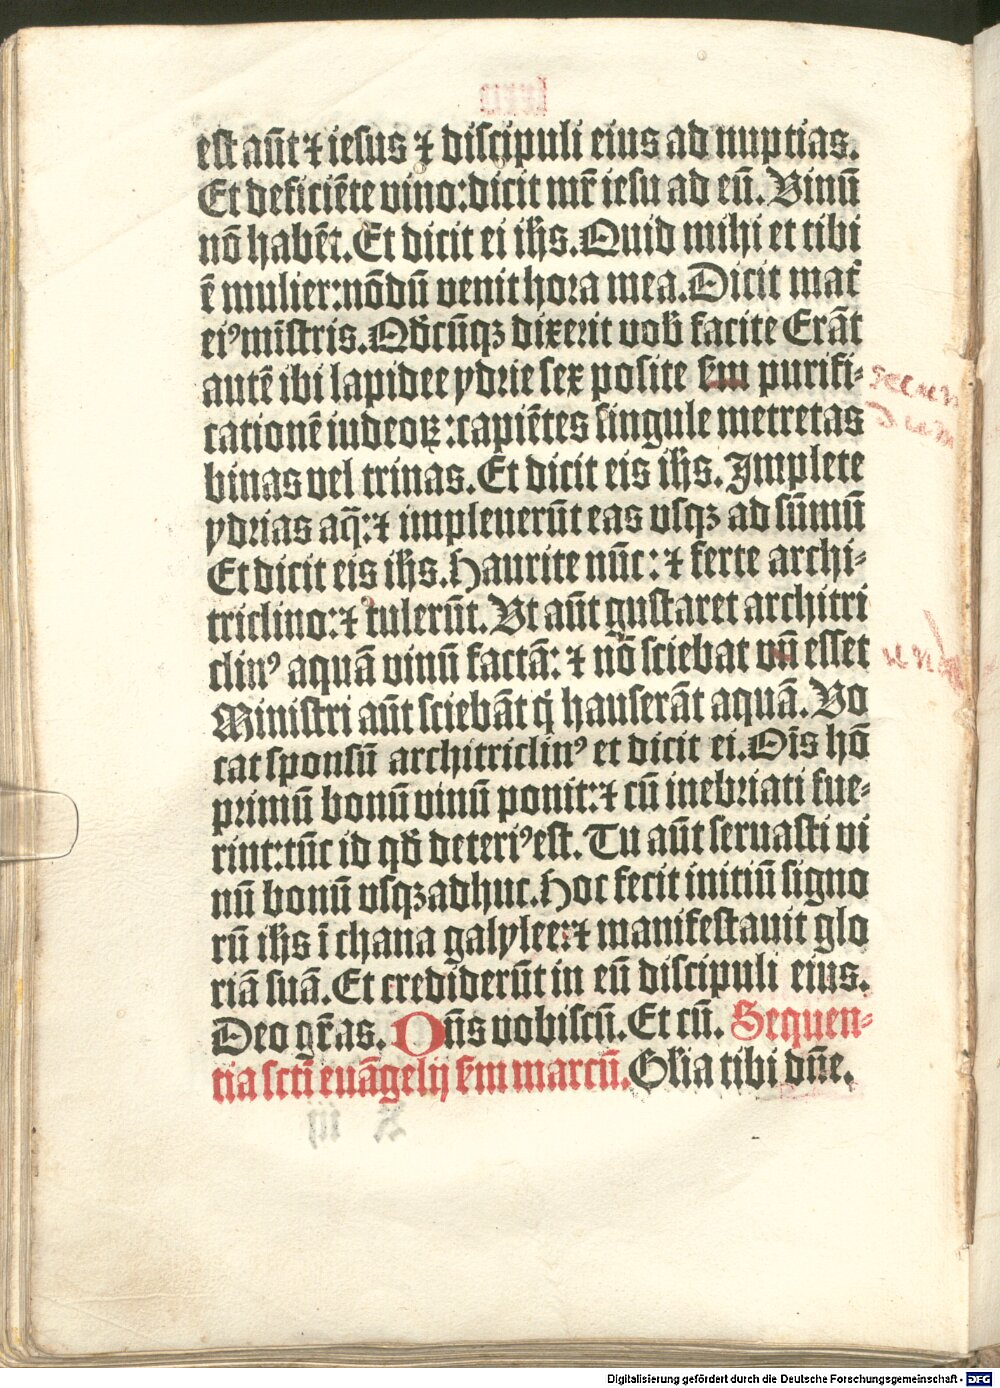 est aūt ⁊ iesus ⁊ discipuli eius ad nuptias.
Et deficiēte vino: dicit mr̄ iesu ad eū. Vinū
nō habēt. Et dicit ei ih̄s. Quid mihi et tibi
ē mulier: nōdū venit hora mea. Dicit mat̄
eiꝰ mīstris. Qd̄cūqꝫ dixerit vob̄ facite Erāt
autē ibi lapidee ydrie sex posite s̄m purifi-
cationē iudeoꝝ: capiētes singule metretas
binas vel trinas. Et dicit eis ih̄s. Implete
ydrias aq̄: ⁊ impleuerūt eas vsqꝫ ad sūmū
Et dicit eis ih̄s. Haurite nūc: ⁊ ferte archi-
triclino: ⁊ tulerūt. Vt aūt gustaret architri
clinꝰ aquā vinū factā: ⁊ nō sciebat vn̄ esset
Ministri aūt sciebāt q̇ hauserāt aquā. Vo
cat sponsū architriclinꝰ et dicit ei. Oīs hō
primū bonū vinū ponit: ⁊ cū inebriati fue-
rint: tūc id qd̄ deteriꝰ est. Tu aūt seruasti vi
nū bonū vsqꝫ adhuc. Hoc fecit initiū signo
rū ih̄s ī chana galylee: ⁊ manifestauit glo
riā suā. Et crediderūt in eū discipuli eius.
Deo gr̄as. Dn̄s vobiscū. Et cū. Sequen-
tia sctī euāgelij s̄m marcū. Gl̄ia tibi dn̄e.
secun
dum
unde
Digitalisierung gefördert durch die Deutsche Forschungsgemeinschaft - DFG